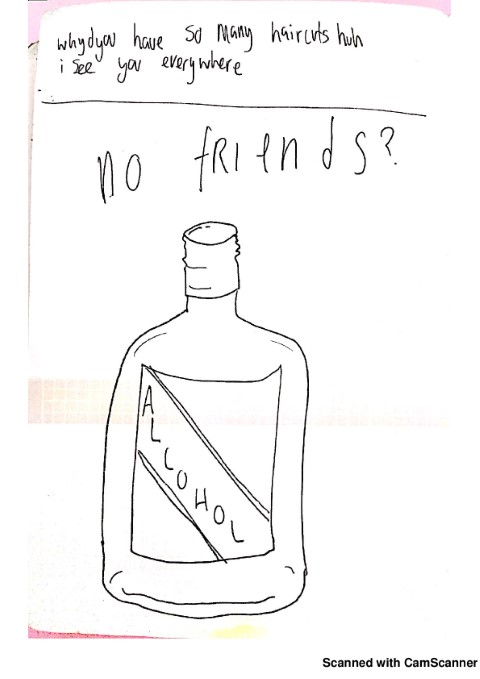 why d you have so many haircuts huh
i see you everywhere
no fRiends?
ALCOHOL
Scanned with CamScanner